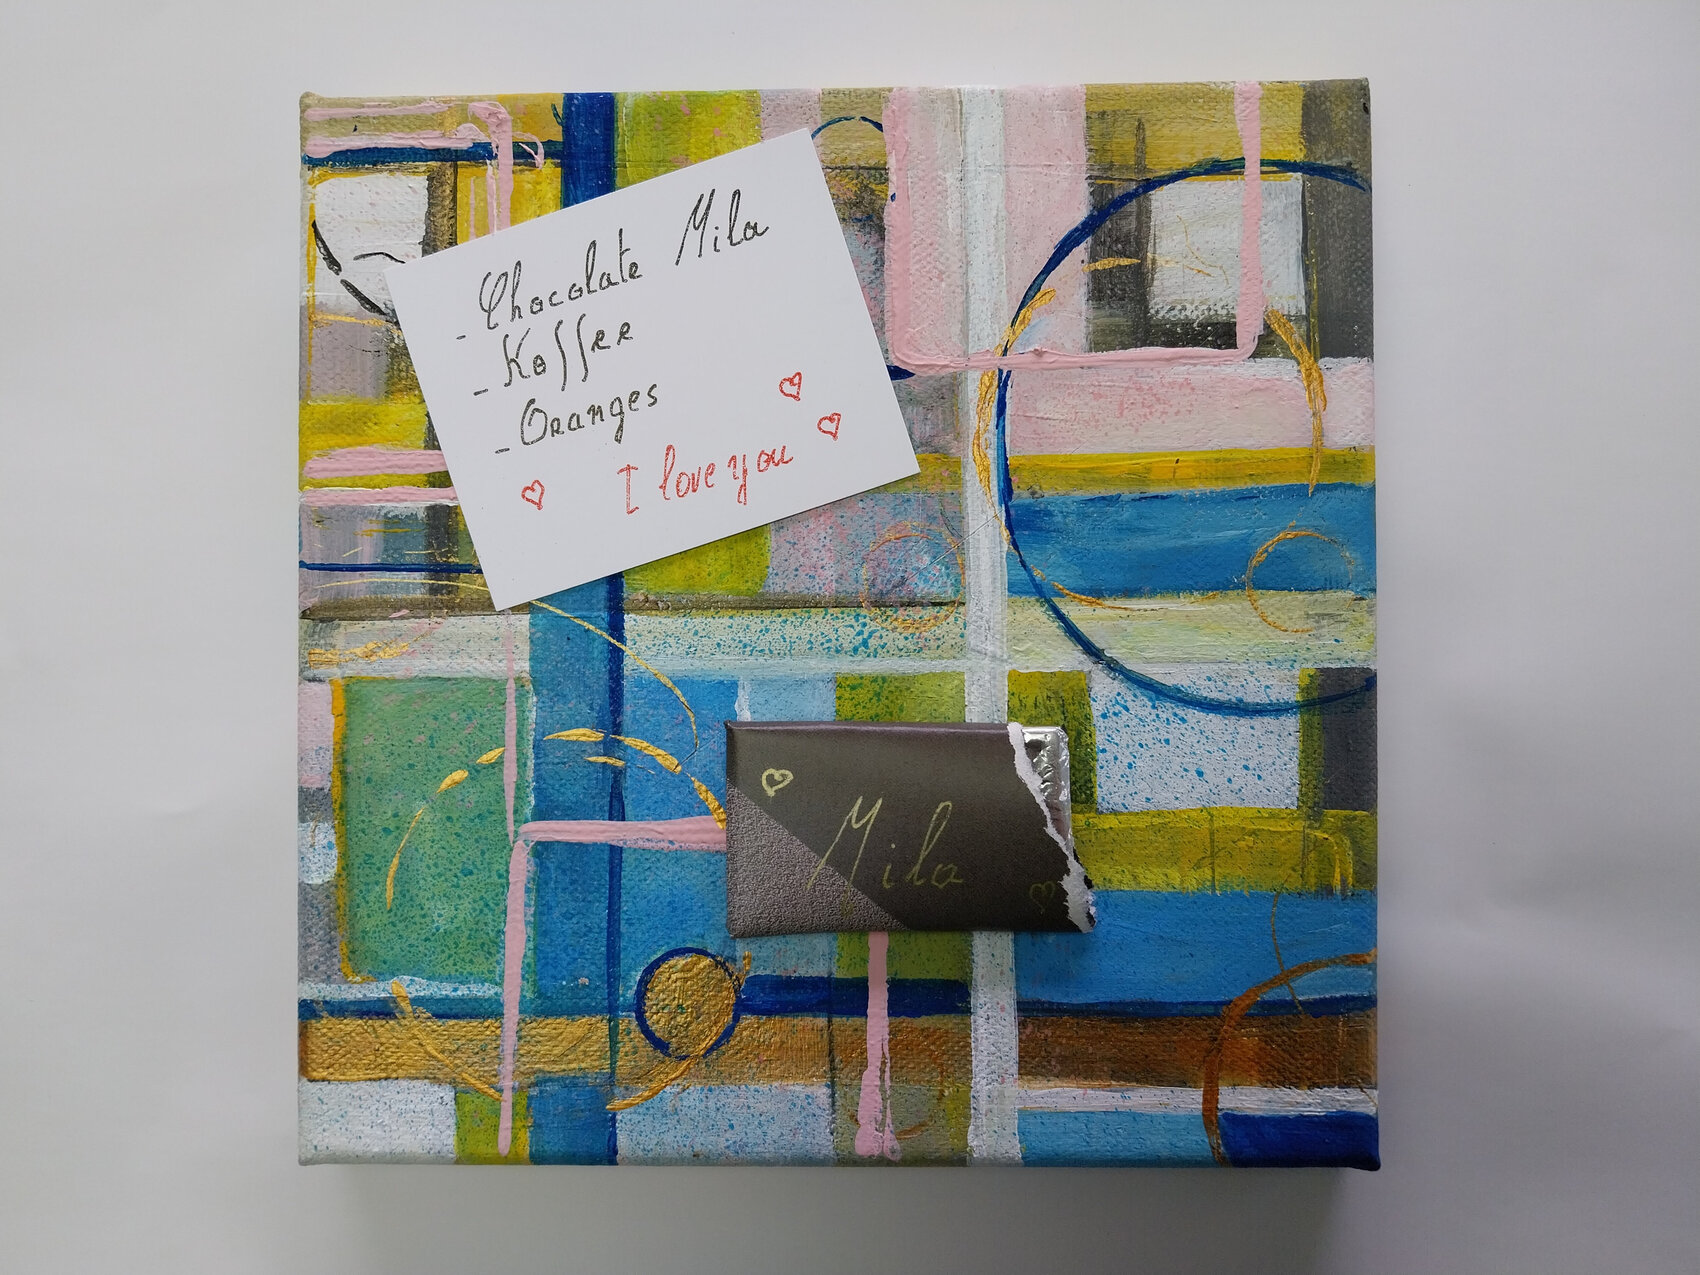 - Chocolate Mila
- Koffee
- Oranges
I love you
Mila